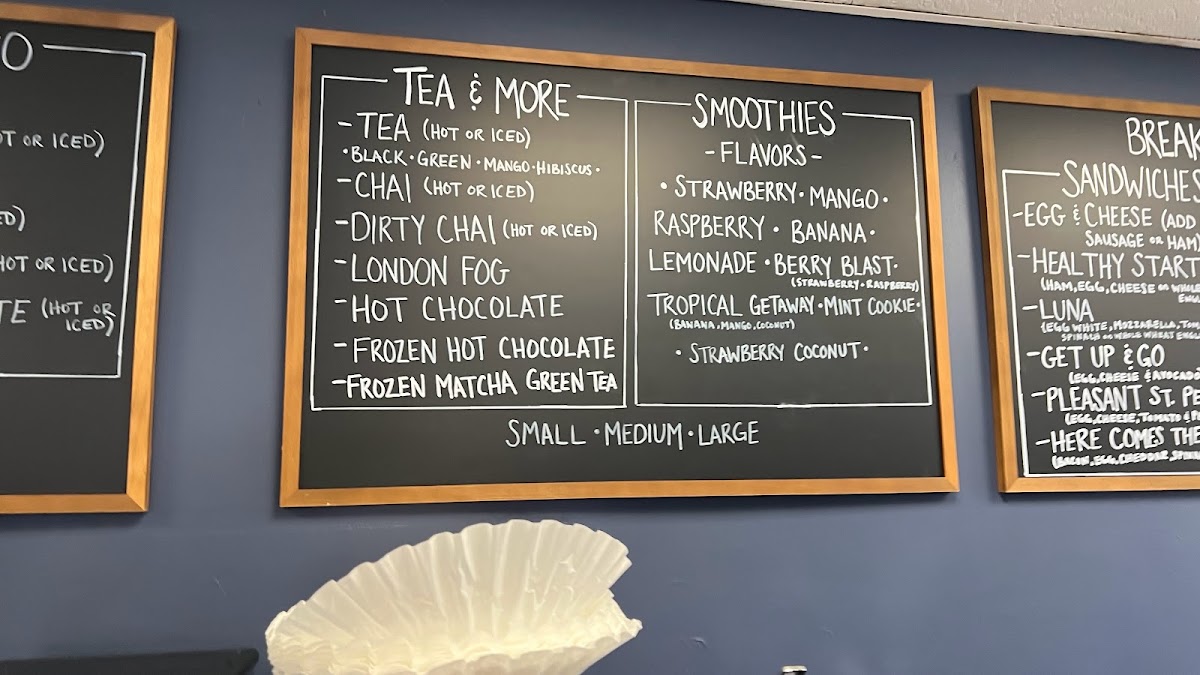 O
OT OR ICED)
ED)
HOT OR ICED)
TE (HOT OR
ICED)
TEA & MORE
-TEA (HOT OR ICED)
•BLACK•GREEN•MANGO•HIBISCUS•
-CHAI (HOT OR ICED)
-DIRTY CHAI (HOT OR ICED)
-LONDON FOG
-HOT CHOCOLATE
-FROZEN HOT CHOCOLATE
-FROZEN MATCHA GREEN TEA
SMOOTHIES
-FLAVORS-
•STRAWBERRY•MANGO•
RASPBERRY•BANANA•
LEMONADE•BERRY BLAST•
(STRAWBERRY•RASPBERRY)
TROPICAL GETAWAY•MINT COOKIE•
(BANANA,MANGO,COCONUT)
•STRAWBERRY COCONUT•
SMALL•MEDIUM•LARGE
BREAK
SANDWICHES
-EGG & CHEESE (ADD
SAUSAGE OR HAM)
-HEALTHY START
(HAM,EGG,CHEESE ON WHOLE
ENGL
-LUNA
(EGG WHITE, MOZZARELLA, TOM
SPINACH ON WHOLE WHEAT ENGL
-GET UP & GO
(EGG,CHEESE & AVOCADO
-PLEASANT ST. PE
(EGG,CHEESE,TOMATO & P
-HERE COMES THE
(BACON,EGG,CHEDDAR,SPIN